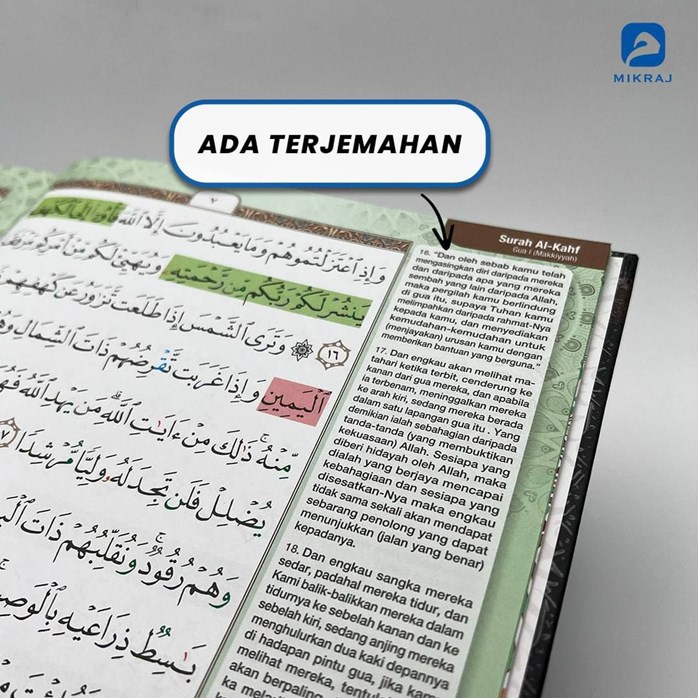 MIKRAJ
ADA TERJEMAHAN
Surah Al-Kahf
Gua I (Makkiyyah)
٧
وَإِذِ ٱعْتَزَلْتُمُوهُمْ وَمَا يَعْبُدُونَ إِلَّا ٱللَّهَ فَأْوُۥٓا۟ إِلَى ٱلْكَهْفِ
يَنشُرْ لَكُمْ رَبُّكُم مِّن رَّحْمَتِهِۦ وَيُهَيِّئْ لَكُم مِّنْ أَمْرِكُم مِّرْفَقًا
١٦ ۞ وَتَرَى ٱلشَّمْسَ إِذَا طَلَعَت تَّزَٰوَرُ عَن كَهْفِهِمْ
ٱلْيَمِينِ وَإِذَا غَرَبَت تَّقْرِضُهُمْ ذَاتَ ٱلشِّمَالِ وَهُمْ
مِّنْهُ ۚ ذَٰلِكَ مِنْ ءَايَٰتِ ٱللَّهِ ۗ مَن يَهْدِ ٱللَّهُ فَهُوَ
يُضْلِلْ فَلَن تَجِدَ لَهُۥ وَلِيًّا مُّرْشِدًا ١٧
وَهُمْ رُقُودٌ ۚ وَنُقَلِّبُهُمْ ذَاتَ
بَٰسِطٌ ذِرَاعَيْهِ بِٱلْوَصِيدِ
16. "Dan oleh sebab kamu telah
mengasingkan diri daripada mereka
dan daripada apa yang mereka
sembah yang lain daripada Allah,
maka pergilah kamu berlindung
di gua itu, supaya Tuhan kamu
melimpahkan daripada rahmat-Nya
kepada kamu, dan menyediakan
kemudahan-kemudahan untuk
(menjayakan) urusan kamu dengan
memberikan bantuan yang berguna."
17. Dan engkau akan melihat ma-
tahari ketika terbit, cenderung ke
kanan dari gua mereka, dan apabila
ia terbenam, meninggalkan mereka
ke arah kiri, sedang mereka berada
dalam satu lapangan gua itu . Yang
demikian ialah sebahagian daripada
tanda-tanda (yang membuktikan
kekuasaan) Allah. Sesiapa yang
diberi hidayah oleh Allah, maka
dialah yang berjaya mencapai
kebahagiaan dan sesiapa yang
disesatkan-Nya maka engkau
tidak sama sekali akan mendapat
sebarang penolong yang dapat
menunjukkan (jalan yang benar)
kepadanya.
18. Dan engkau sangka mereka
sedar, padahal mereka tidur, dan
Kami balik-balikkan mereka dalam
tidurnya ke sebelah kanan dan ke
sebelah kiri, sedang anjing mereka
menghulurkan dua kaki depannya
di hadapan pintu gua, jika kamu
melihat mereka, tentulah
akan berpaling